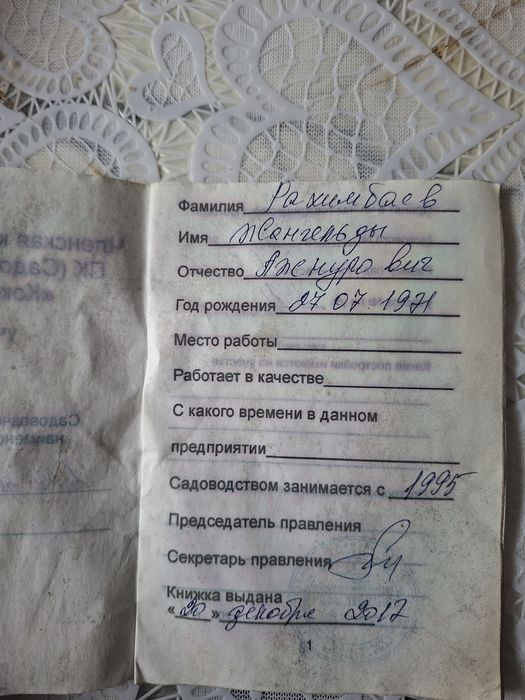 Фамилия Рахимбаев
Имя Жангельды
Отчество
Год рождения 27.07.1971
Место работы
Работает в качестве
С какого времени в данном
предприятии
Садоводством занимается с 1995
Председатель правления
Секретарь правления
Книжка выдана
«20» декабря 2017
1